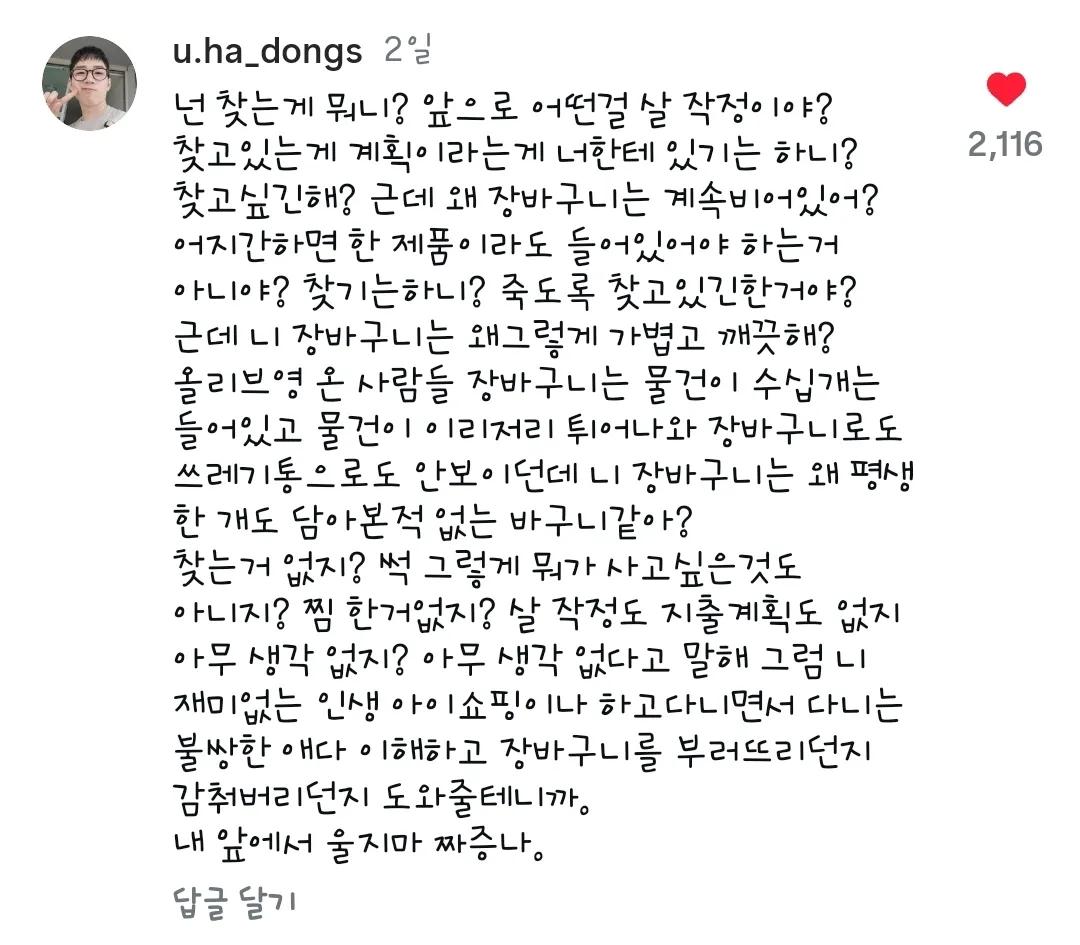 u.ha_dongs 2일
넌 찾는게 뭐니? 앞으로 어떤걸 살 작정이야?
찾고있는게 계획이라는게 너한테 있기는 하니?
찾고싶긴해? 근데 왜 장바구니는 계속비어있어?
어지간하면 한 제품이라도 들어있어야 하는거
아니야? 찾기는하니? 죽도록 찾고있긴한거야?
근데 니 장바구니는 왜그렇게 가볍고 깨끗해?
올리브영 온 사람들 장바구니는 물건이 수십개는
들어있고 물건이 이리저리 튀어나와 장바구니로도
쓰레기통으로도 안보이던데 니 장바구니는 왜 평생
한 개도 담아본적 없는 바구니같아?
찾는거 없지? 썩 그렇게 뭐가 사고싶은것도
아니지? 찜 한거없지? 살 작정도 지출계획도 없지
아무 생각 없지? 아무 생각 없다고 말해 그럼 니
재미없는 인생 아이쇼핑이나 하고다니면서 다니는
불쌍한 애다 이해하고 장바구니를 부러뜨리던지
감춰버리던지 도와줄테니까。
내 앞에서 울지마 짜증나。
답글 달기
2,116